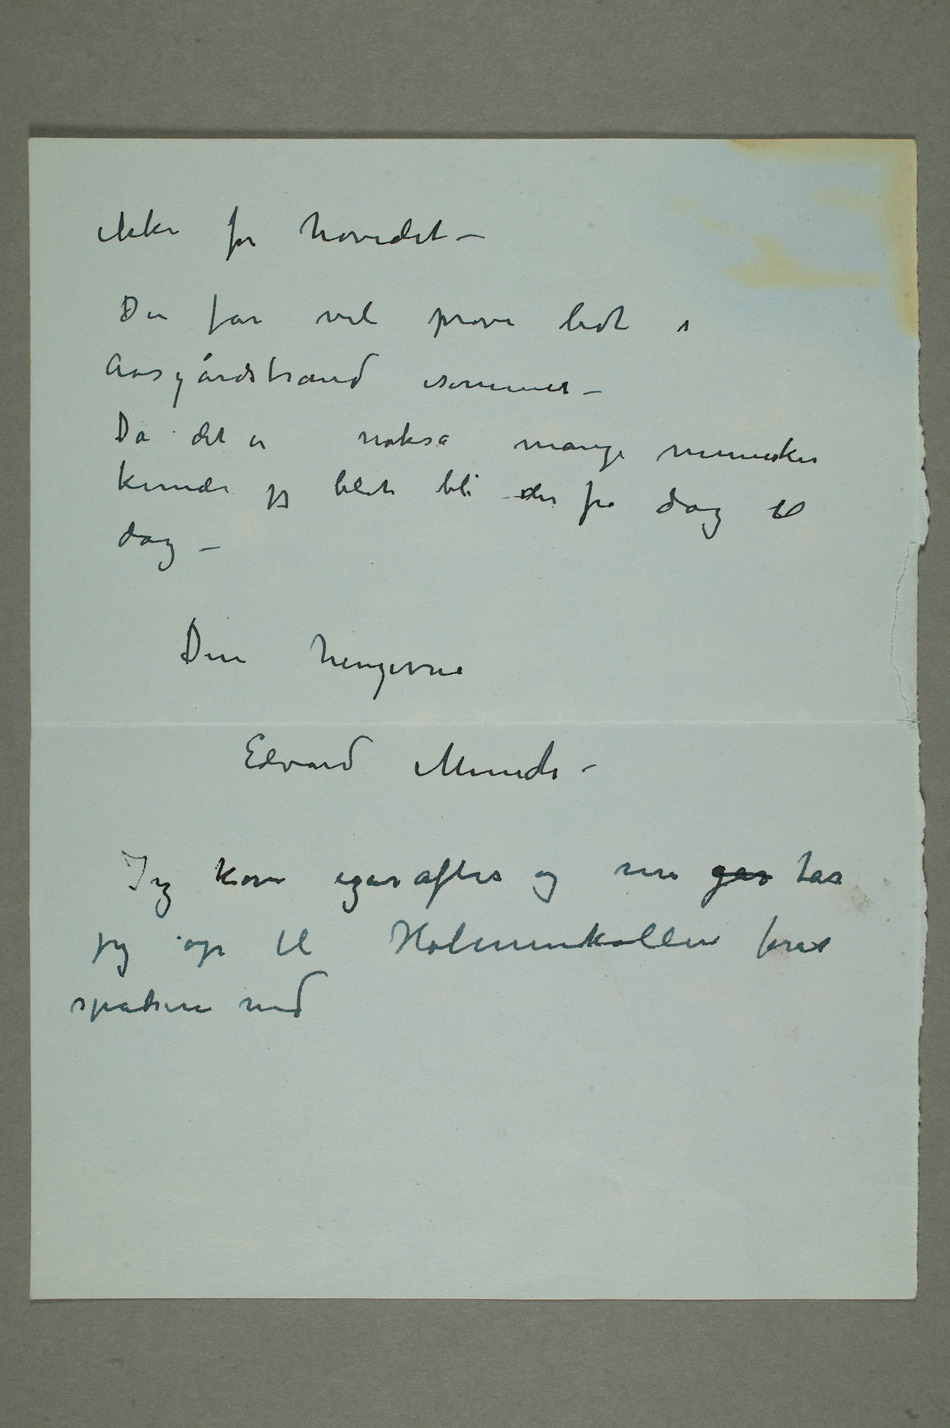 ikke for hovedet –
Du får vel prøve lidt i
Aasgårdstrand isommer –
Da det er nokså mange mennesker
kunde jeg blot bli der fra dag til
dag –
Din hengivne
Edvard Munch –
Jeg kom igåraftes og nu gar tar
jeg op til Holmenkollen forat
spadsere ned